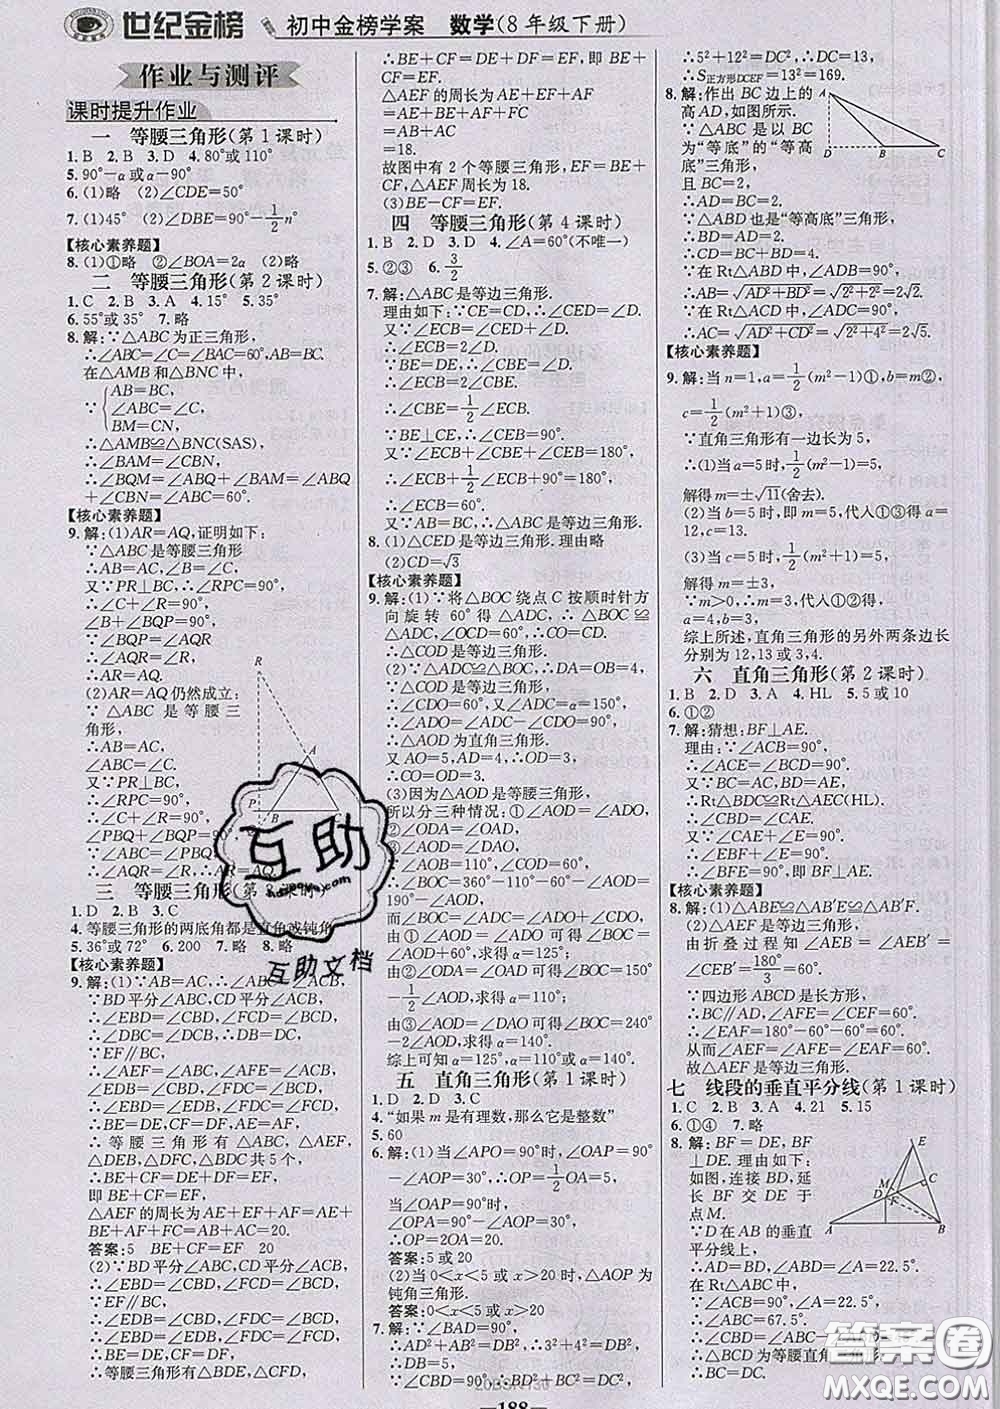 世纪金榜 初中金榜学案 数学(8年级下册)
作业与测评
课时提升作业
一 等腰三角形(第1课时)
1.B 2.B 3.D 4.80°或110°
5.90°-α或α-90°
6.(1)略 (2)∠CDE=50°
7.(1)45° (2)∠DBE=90°-1/2n°
【核心素养题】
8.(1)①略 ②∠BOA=2α (2)略
二 等腰三角形(第2课时)
1.C 2.B 3.A 4.15° 5.35°
6.55°或35° 7.略
8.解:∵△ABC为正三角形,
∴∠ABC=∠C=∠BAC=60°,AB=BC.
在△AMB和△BNC中,
AB=BC,
∵ ∠ABC=∠C,
BM=CN,
∴△AMB≌△BNC(SAS),
∴∠BAM=∠CBN,
∴∠BQM=∠ABQ+∠BAM=∠ABQ
+∠CBN=∠ABC=60°.
【核心素养题】
9.解:(1)AR=AQ,证明如下:
∵△ABC是等腰三角形
∴AB=AC,∴∠B=∠C
又∵PR⊥BC,∴∠RPC=90°,
∠B+∠BQP=90°,
∴∠BQP=∠AQR
∴∠AQR=∠R,
∴AR=AQ.
(2)AR=AQ仍然成立:
∵△ABC是等腰三角
形,
∴AB=AC,
∠ABC=∠C.
又∵PR⊥BC,
∴∠RPC=90°,
∴∠C+∠R=90°,
∠PBQ+∠BQP=90°
∵∠ABC=∠PBQ,∴∠PBQ=∠C,
∴∠AQR=∠R,∴AR=AQ.
三 等腰三角形(第3课时)
1.D 2.B 3.C
4.等腰三角形的两底角都是直角或钝角
5.36°或72° 6.200 7.略 8.略
【核心素养题】
9.解:(1)∵AB=AC,∴∠ABC=∠ACB,
∵BD平分∠ABC,CD平分∠ACB,
∴∠EBD=∠CBD,∠FCD=∠BCD,
∴∠DBC=∠DCB,∴DB=DC,
∵EF∥BC,
∴∠EDB=∠CBD,∠FDC=∠BCD,
∴∠EBD=∠EDB,∠FDC=∠FCD,
∴BE=DE,CF=DF,AE=AF,
∴等腰三角形有△ABC,△AEF,
△DEB,△DFC,△BDC共5个,
∴BE+CF=DE+DF=EF,
即BE+CF=EF,
△AEF的周长为AE+EF+AF=AE+
BE+CF+AF=AB+AC=20.
答案:5 BE+CF=EF 20
(2)∵BD平分∠ABC,CD平分∠ACB,
∴∠EBD=∠CBD,∠FCD=∠BCD,
∵EF∥BC,
∴∠EDB=∠CBD,∠FDC=∠BCD,
∴∠EBD=∠EDB,∠FDC=∠FCD,
∴BE=DE,CF=DF,
∴等腰三角形有△BDE,△CFD,
∴BE+CF=DE+DF=EF,
即BE+CF=EF.
△AEF的周长为AE+EF+AF
=AE+BE+AF+FC
=AB+AC
=18.
故图中有2个等腰三角形,EF=BE+
CF,△AEF周长为18.
(3)BE-CF=EF.
四 等腰三角形(第4课时)
1.B 2.D 3.D 4.∠A=60°(不唯一)
5.②③ 6.3/2
7.解:△ABC是等边三角形.
理由如下:∵CE=CD,∴∠CED=∠D.
又∵∠ECB=∠CED+∠D.
∴∠ECB=2∠D.
∵BE=DE,∴∠CBE=∠D.
∴∠ECB=2∠CBE.
∴∠CBE=1/2∠ECB.
∵BE⊥CE,∴∠CEB=90°.
又∵∠ECB+∠CBE+∠CEB=180°,
∴∠ECB+1/2∠ECB+90°=180°,
∴∠ECB=60°.
又∵AB=AC,
∴△ABC是等边三角形.
8.(1)△CED是等边三角形.理由略
(2)CD=√3
【核心素养题】
9.解:(1)∵将△BOC绕点C按顺时针方
向旋转60°得△ADC,∴△BOC≌
△ADC,∠OCD=60°,∴CO=CD.
∴△COD是等边三角形.
(2)∵△ADC≌△BOC,∴DA=OB=4,
∵△COD是等边三角形,
∴∠CDO=60°,又∠ADC=∠α=150°,
∴∠ADO=∠ADC-∠CDO=90°,
∴△AOD为直角三角形.
又AO=5,AD=4,∴OD=3,
∴CO=OD=3;
(3)因为△AOD是等腰三角形,
所以分三种情况:①∠AOD=∠ADO,
②∠ODA=∠OAD,
③∠AOD=∠DAO,
∵∠AOB=110°,∠COD=60°,
∴∠BOC=360°-110°-60°-∠AOD
=190°-∠AOD,
而∠BOC=∠ADC=∠ADO+∠CDO,
由①∠AOD=∠ADO可得∠BOC=
∠AOD+60°,求得α=125°;
由②∠ODA=∠OAD可得∠BOC=150°
-1/2∠AOD,求得α=110°;
由③∠AOD=∠DAO可得∠BOC=240°
-2∠AOD,求得α=140°;
综上可知α=125°,α=110°或α=140°.
五 直角三角形(第1课时)
1.D 2.D 3.C
4.“如果m是有理数,那么它是整数”
5.60
6.解:(1)当∠APO=90°时,∠OAP=90°
-∠AOP=30°,∴OP=1/2OA=5,
当∠OAP=90°时,
∠OPA=90°-∠AOP=30°,
∴OP=2OA=20.
答案:5或20
(2)当0<x<5或x>20时,△AOP为
钝角三角形.
答案:0<x<5或x>20
7.解:∵∠BAD=90°,
∴△ADB是直角三角形,
∴AD²+AB²=BD²,∴3²+4²=DB²,
∴DB=5,
同理∴DB²+BC²=DC²,
∴5²+12²=DC²,∴DC=13,
∴S正方形DCEF=13²=169.
8.解:作出BC边上的
高AD,如图所示.
∵△ABC是以BC
为“等底”的“等高
底”三角形,
且BC=2,
∴AD=BC=2.
∵△ABD也是“等高底”三角形,
∴BD=AD=2.
∴CD=BD+BC=2+2=4.
∵在Rt△ABD中,∠ADB=90°,
∴AB=√(AD²+BD²)=√(2²+2²)=2√2.
∵在Rt△ACD中,∠ADC=90°,
∴AC=√(AD²+CD²)=√(2²+4²)=2√5.
【核心素养题】
9.解:当n=1,a=1/2(m²-1)①,b=m②,
c=1/2(m²+1)③,
∵直角三角形有一边长为5,
∴(1)当a=5时,1/2(m²-1)=5,
解得m=±√11(舍去).
(2)当b=5时,即m=5,代入①③得,a=
12,c=13.
(3)当c=5时,1/2(m²+1)=5,
解得m=±3,
∵m>0,∴m=3,代入①②得,
a=4,b=3,
综上所述,直角三角形的另外两条边长
分别为12,13或3,4.
六 直角三角形(第2课时)
1.B 2.D 3.A 4.HL 5.5或10
6.①②
7.解:猜想:BF⊥AE.
理由:∵∠ACB=90°,
∴∠ACE=∠BCD=90°.
又∵BC=AC,BD=AE,
∴Rt△BDC≌Rt△AEC(HL).
∴∠CBD=∠CAE.
又∵∠CAE+∠E=90°,
∴∠EBF+∠E=90°.
∴∠BFE=90°,即BF⊥AE.
【核心素养题】
8.解:(1)△ABE≌△AB′E≌△AB′F.
(2)△AEF是等边三角形.
由折叠过程知∠AEB=∠AEB′=
∠CEB′=180°/3=60°.
∵四边形ABCD是长方形,
∴BC∥AD,∴∠AFE=∠CEF=60°.
∴∠EAF=180°-60°-60°=60°.
从而∠AEF=∠AFE=∠EAF=60°.
故△AEF是等边三角形.
七 线段的垂直平分线(第1课时)
1.C 2.B 3.A 4.21 5.15
6.①④ 7.略
8.解:BF=DE,BF
⊥DE.理由如下:
如图,连接BD,延
长BF交DE于
点M.
∵D在AB的垂直
平分线上,
∴AD=BD,∴∠ABD=∠A=22.5°.
在Rt△ABC中,
∵∠ACB=90°,∠A=22.5°,
∴∠ABC=67.5°.
∴∠CBD=∠ABC-∠ABD=45°.
∴△BCD为等腰直角三角形,
188
互助
互助文档
答案圈
MXQE.COM